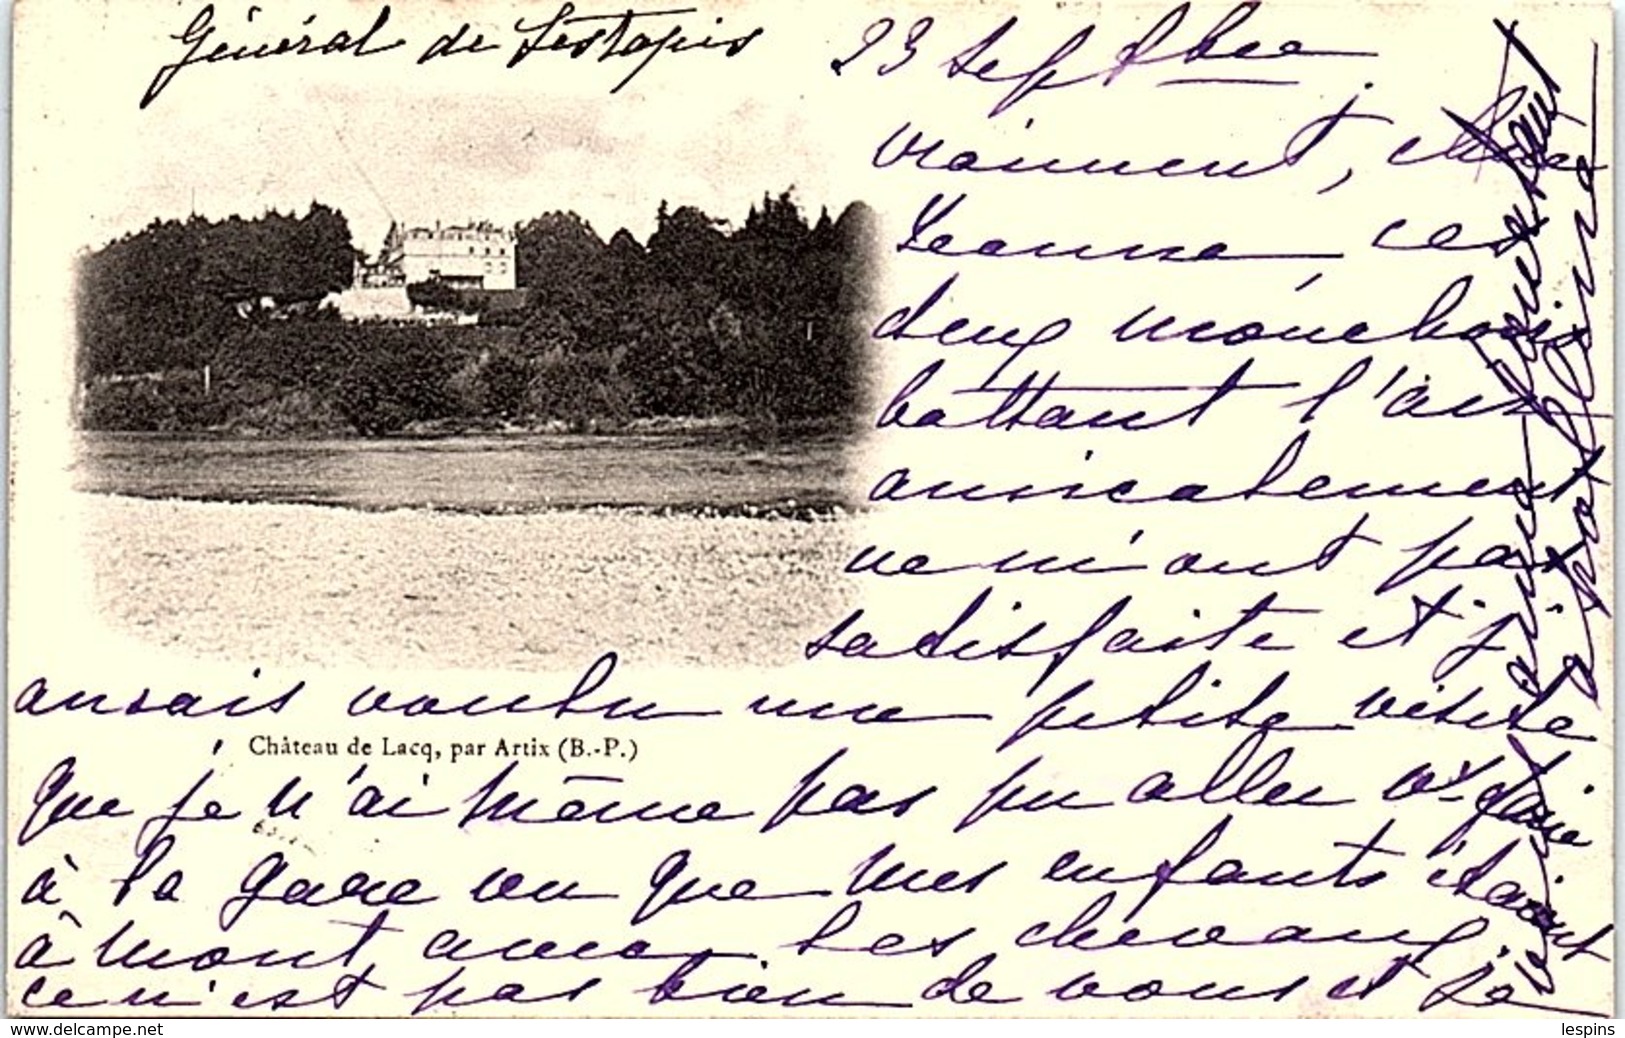 Général de Lestapis
23 Septbre
vraiment, chère
Jeanne, ces
deux mouchoirs
battant l'air
amicalement
ne m'ont pas
satisfaite et j'
aurais voulu une petite visite
Château de Lacq, par Artix (B.-P.)
que je n'ai même pas pu aller vs faire
à la gare vu que mes enfants étaient
à Mont avec les chevaux.
ce n'est pas bien de vous et je
lespins